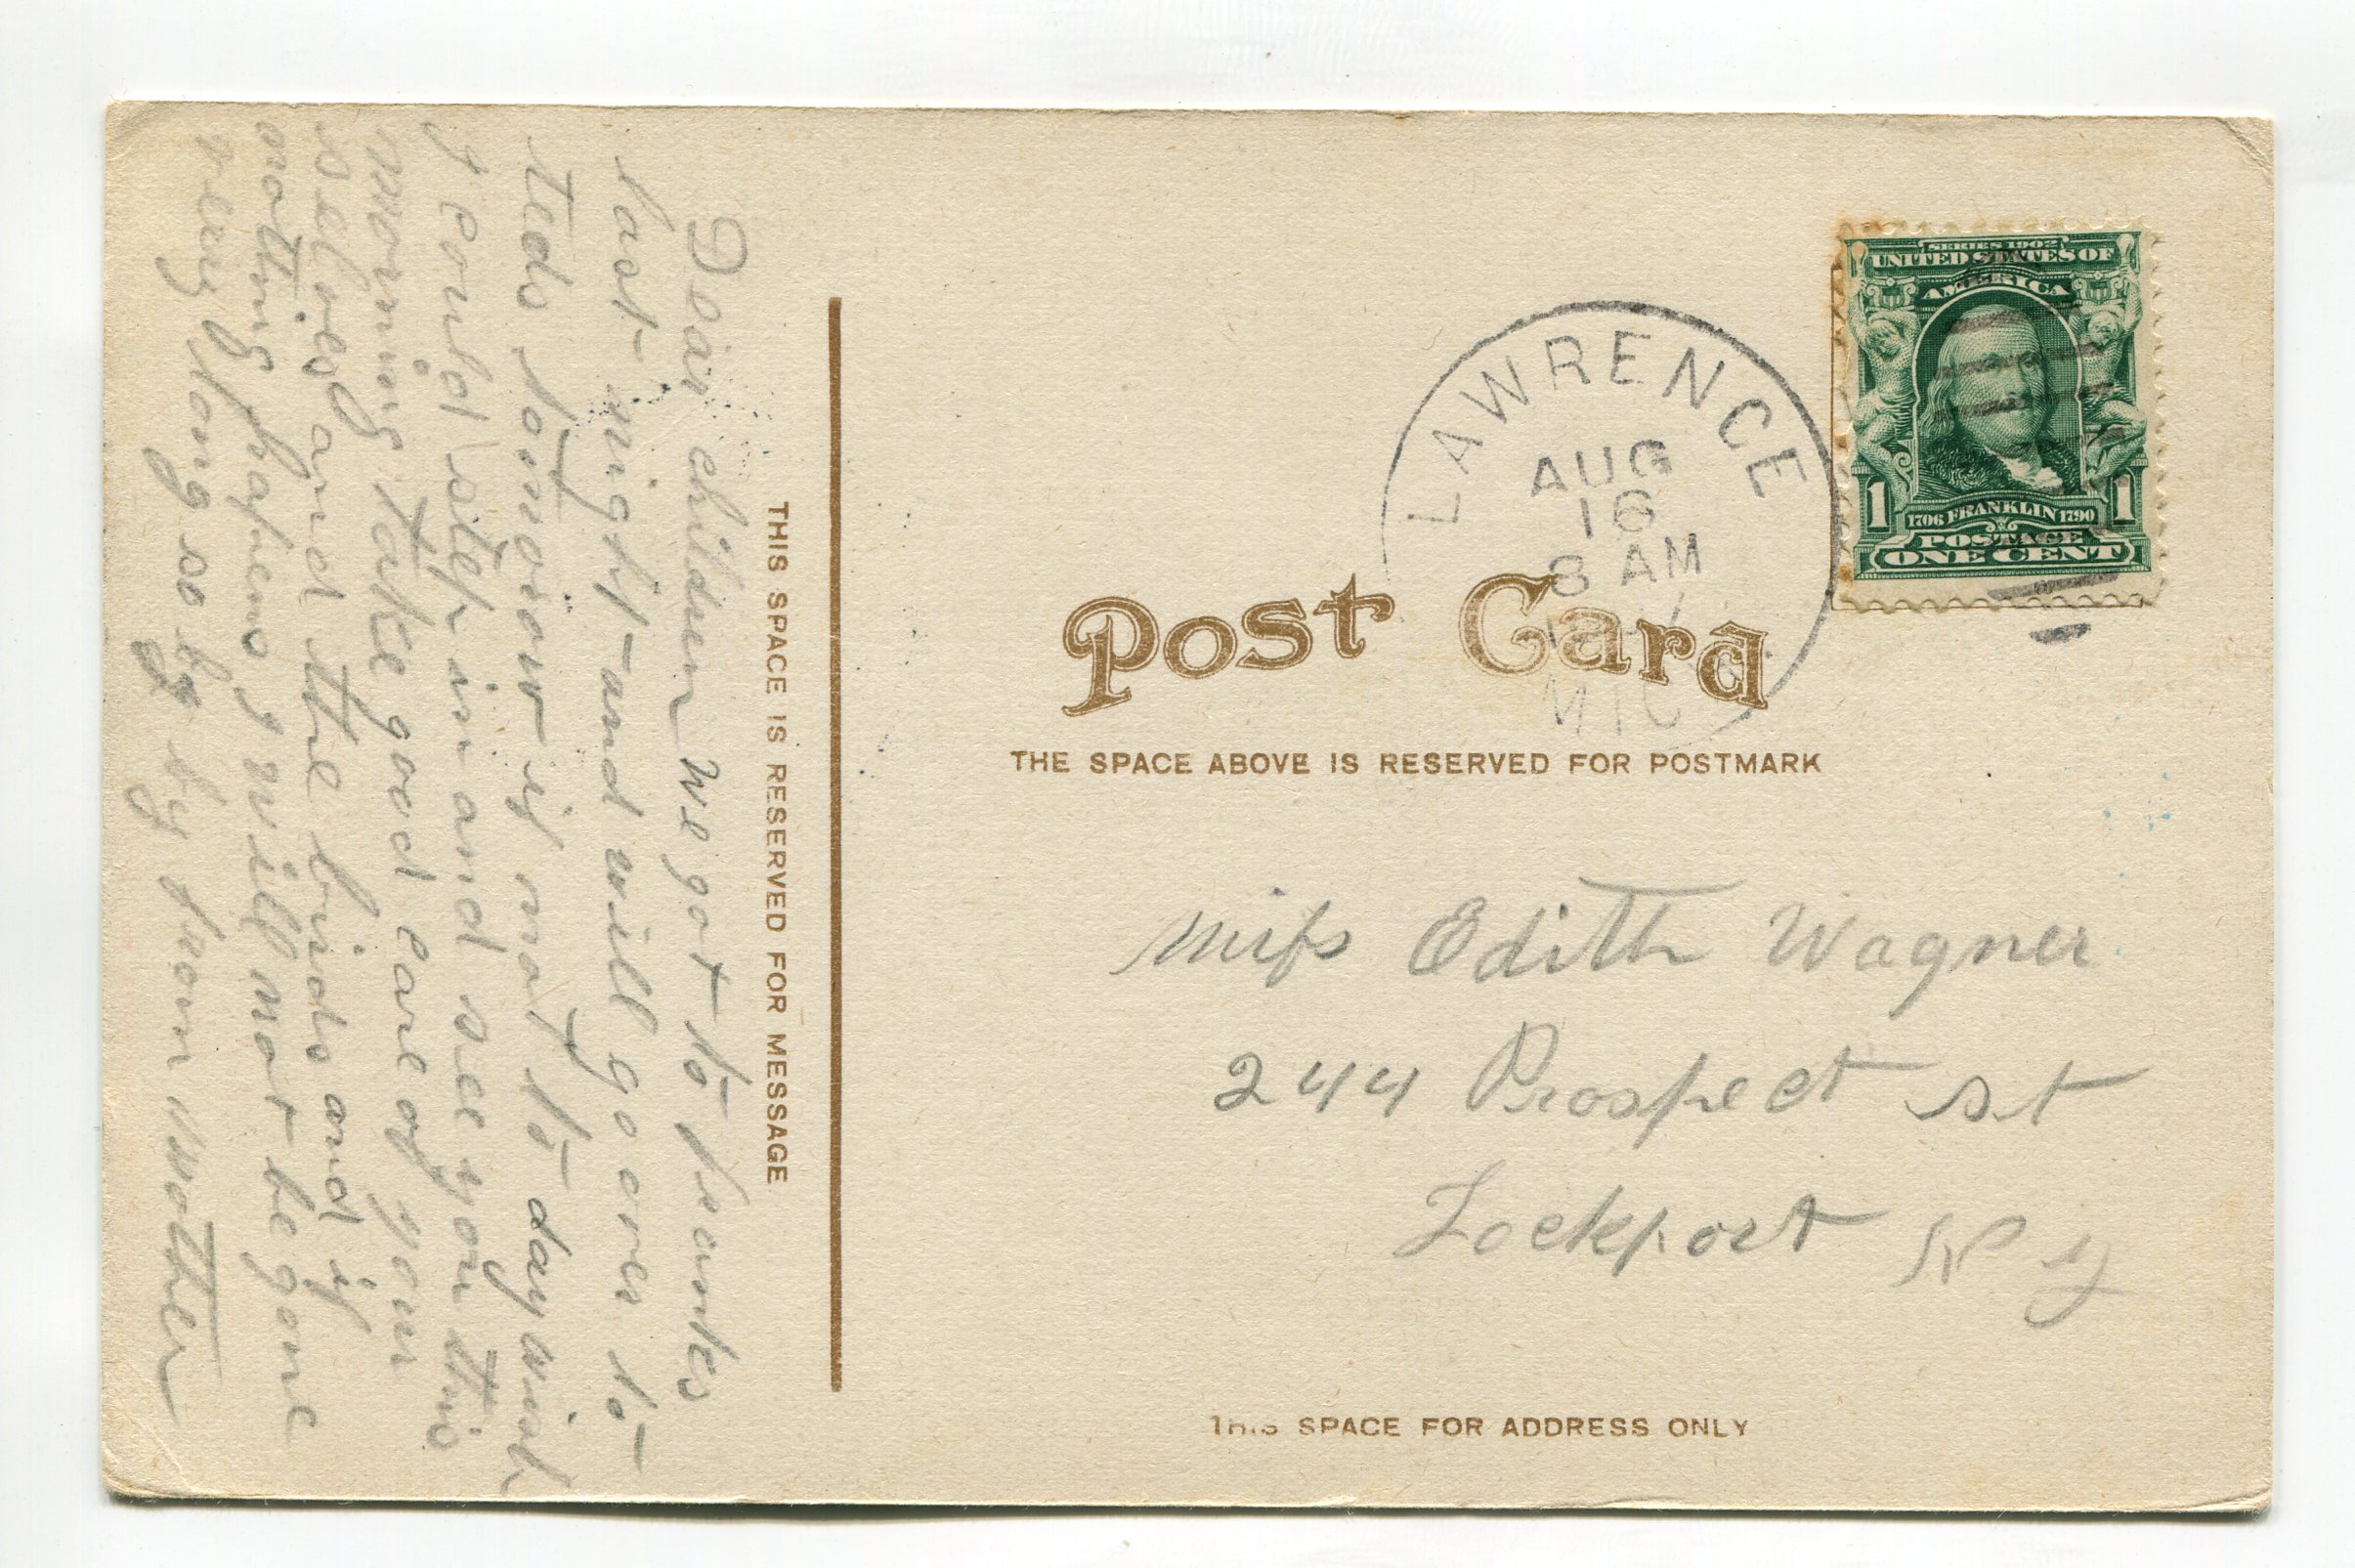 Dear children We got to franks
last night and will go over to
teds tomorow if not to day wish
I could step in and see you this
morning take good care of your
selves and the birds and if
notting hapens I will not be gone
very long so by by from mother
THIS SPACE IS RESERVED FOR MESSAGE
SERIES 1902
UNITED STATES OF
AMERICA
1 1706 FRANKLIN 1790 1
POSTAGE
ONE CENT
LAWRENCE
AUG
16
8 AM
MIC
Post Card
THE SPACE ABOVE IS RESERVED FOR POSTMARK
Miss Edith Wagner
244 Prospect st
Lockport N y
THIS SPACE FOR ADDRESS ONLY